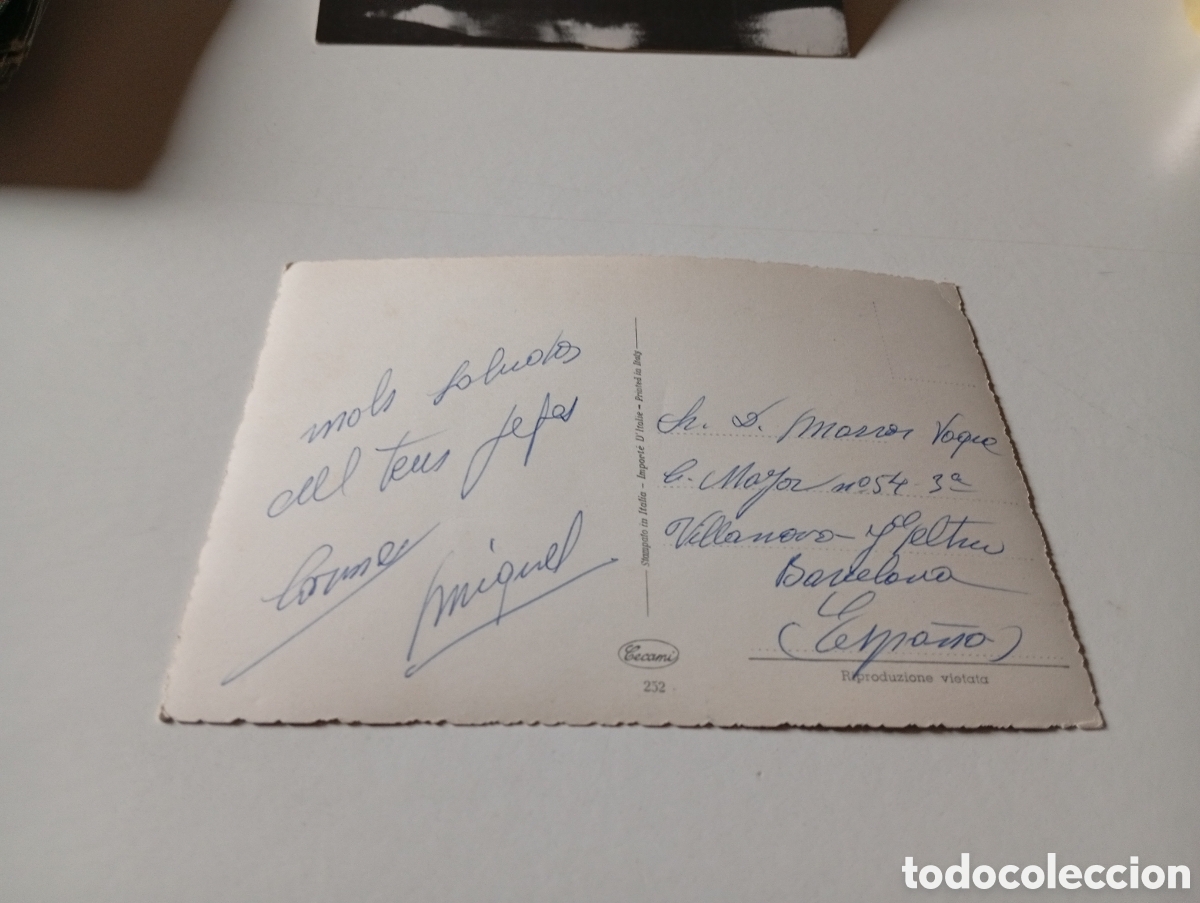 mols saludos
del teus jefes
Carmen
Miquel
Stampato in Italia - Importé D'Italie - Printed in Italy
Cecami
252
Sr. D. Marros Vaque
C. Major nº 54 3ª
Villanova-y Geltru
Barcelona
(España)
Riproduzione vietata
todocoleccion